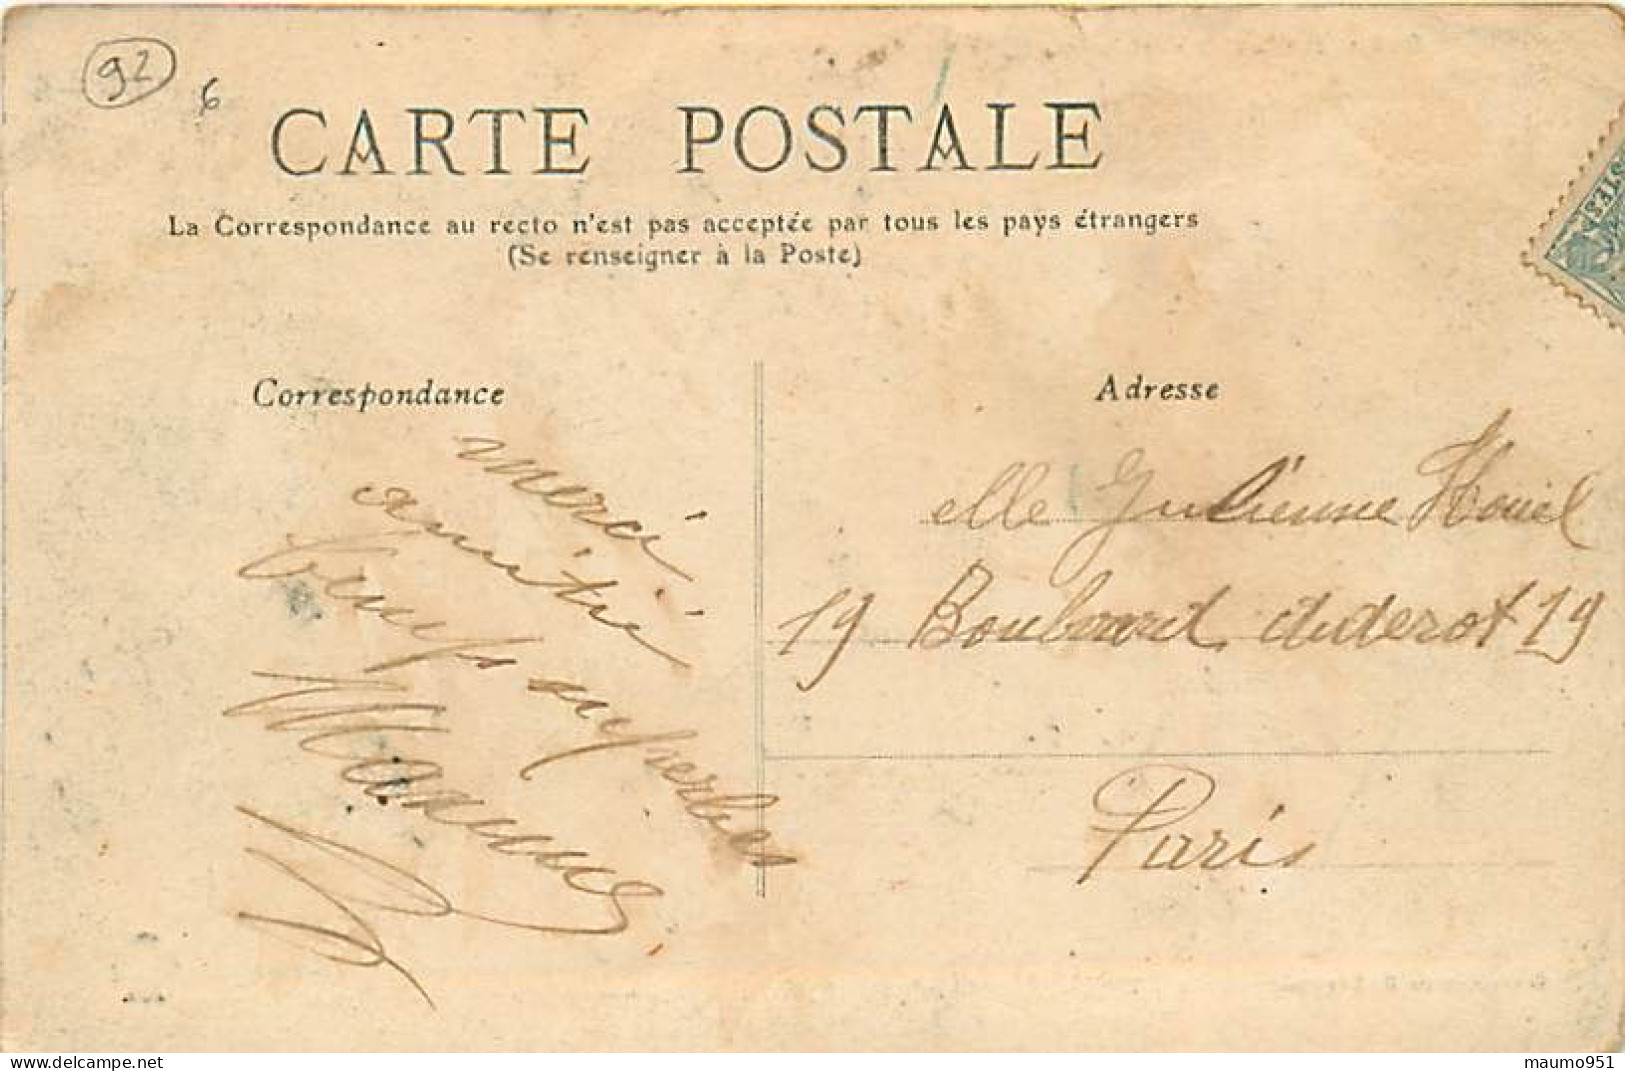 92
6
CARTE POSTALE
La Correspondance au recto n'est pas acceptée par tous les pays étrangers
(Se renseigner à la Poste)
Correspondance
Adresse
merci
amitié
temps superbes
elle Julienne
19 Boulevard diderot 19
Paris
POSTES
www.delcampe.net
maumo951